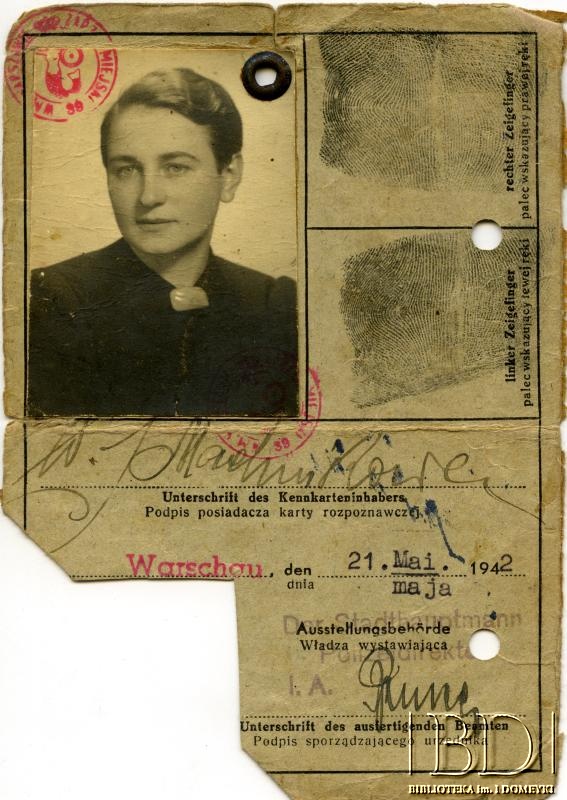 MIEJSKI
39
rechter Zeigefinger
palec wskazujący prawej ręki
linker Zeigefinger
palec wskazujący lewej ręki
39
Unterschrift des Kennkarteninhabers
Podpis posiadacza karty rozpoznawczej
Warschau, den 21. Mai. 1942
dnia maja
Der Stadthauptmann
Ausstellungsbehörde
Władza wystawiająca
I. A.
Unterschrift des ausfertigenden Beamten
Podpis sporządzającego urzędnika
BD
BIBLIOTEKA im. I DOMEYKI